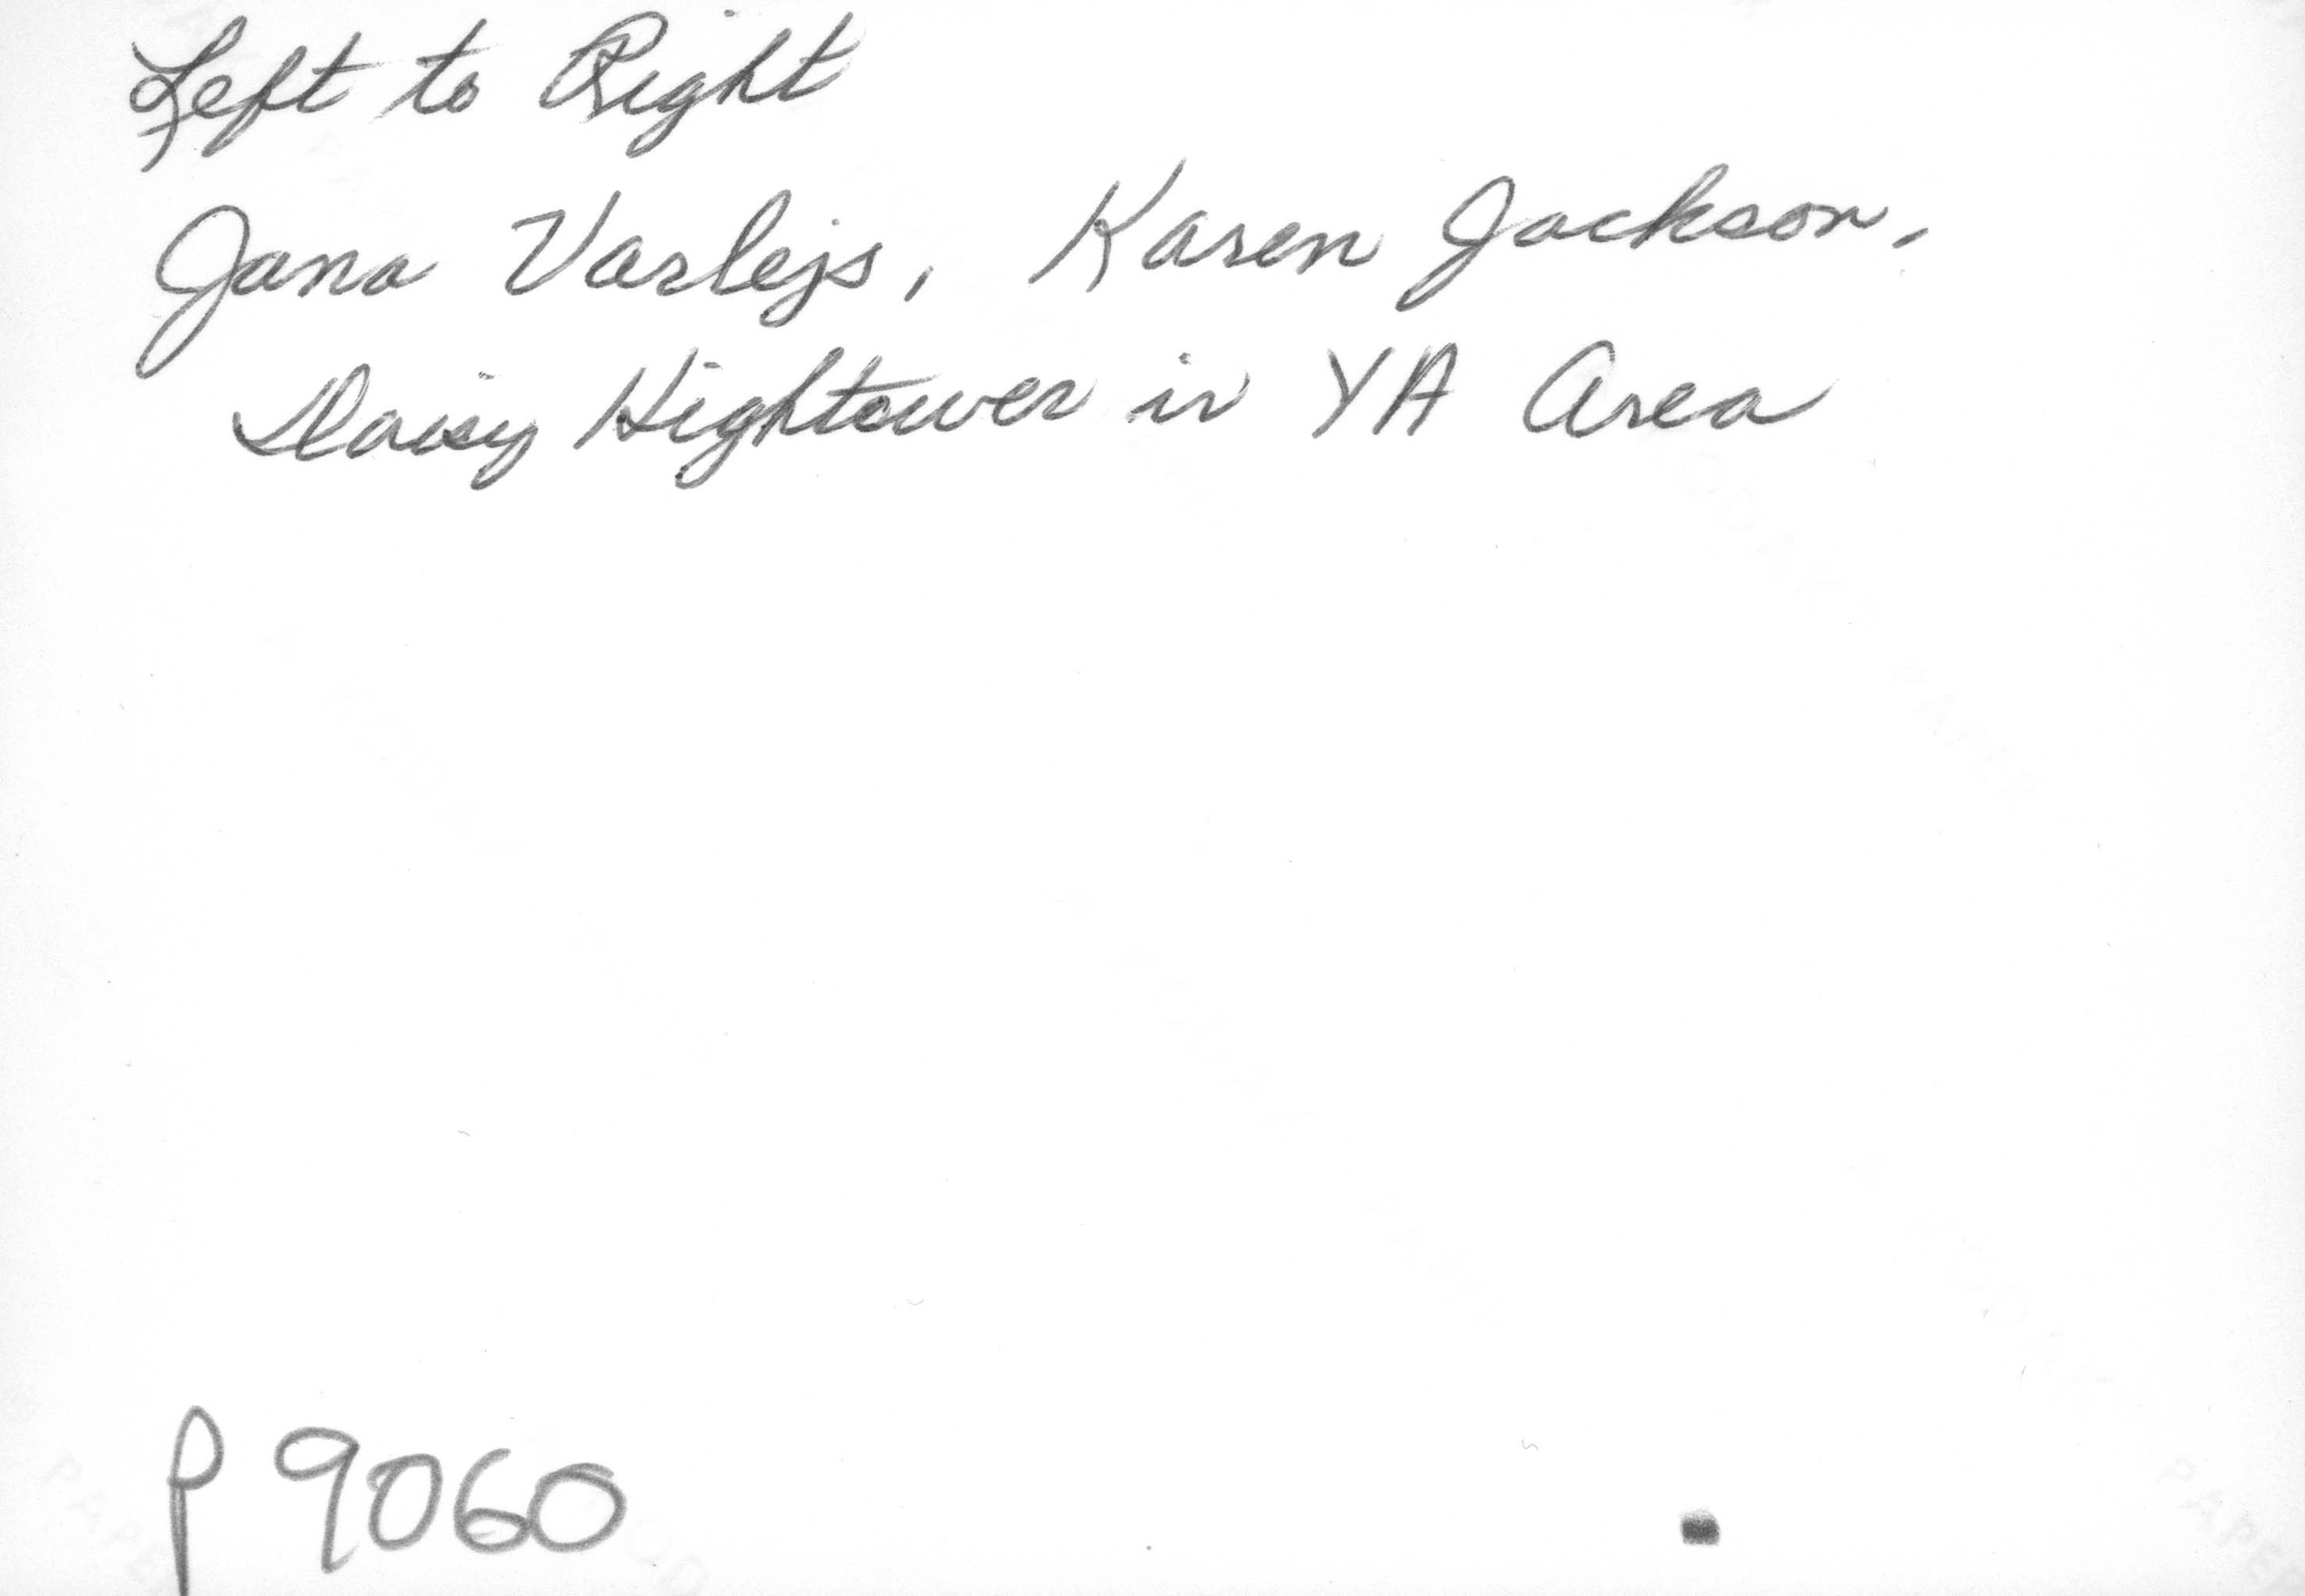 Left to Right
Jana Varlejs, Karen Jackson,
Daisy Hightower in YA Area
P 9060